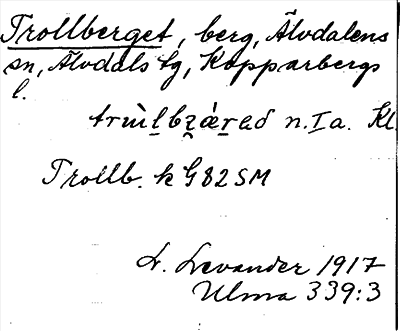 Trollberget, berg, Älvdalens
sn, Älvdals tg, Kopparbergs
l.
n.Ia. Kl.
Trollb. k G82SM
L. Levander 1917
Ulma 339:3